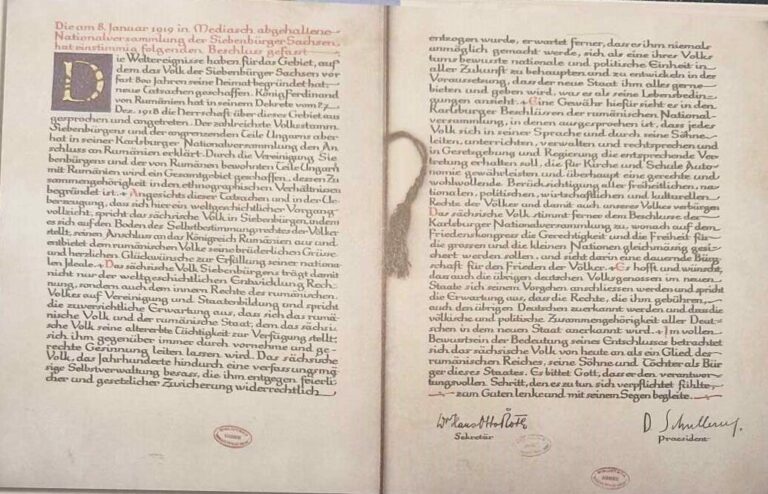 Die am 8. Januar 1919 in Mediasch abgehaltene
Nationalversammlung der Siebenbürger Sachsen
hat einstimmig folgenden Beschluss gefasst
Die Weltereignisse haben für das Gebiet, auf
dem das Volk der Siebenbürger Sachsen vor
fast 800 Jahren seine Heimat begründet hat,
neue Tatsachen geschaffen. König Ferdinand
von Rumänien hat in seinem Dekrete vom 27.
Dez. 1918 die Herrschaft über dieses Gebiet aus-
gesprochen und angetreten. Der zahlreichste Volksstamm
Siebenbürgens und der angrenzenden Teile Ungarns aber
hat in seiner Karlsburger Nationalversammlung den An-
schluss an Rumänien erklärt. Durch die Vereinigung Sie-
benbürgens und der von Rumänen bewohnten Teile Ungarns
mit Rumänien wird ein Gesamtgebiet geschaffen, dessen Zu-
sammengehörigkeit in den ethnographischen Verhältnissen
begründet ist. + Angesichts dieser Tatsachen und in der Ue-
berzeugung, dass sich hier ein weltgeschichtlicher Vorgang
vollzieht, spricht das sächsische Volk in Siebenbürgen, indem
es sich auf den Boden des Selbstbestimmungsrechtes der Völker
stellt, seinen Anschluss an das Königreich Rumänien aus und
entbietet dem rumänischen Volke seine brüderlichen Grüsse
und herzlichen Glückwünsche zur Erfüllung seiner nationa-
len Ideale. + Das sächsische Volk Siebenbürgens trägt damit
nicht nur der weltgeschichtlichen Entwicklung Rech-
nung, sondern auch dem innern Rechte des rumänischen
Volkes auf Vereinigung und Staatenbildung und spricht
die zuversichtliche Erwartung aus, dass sich das rumä-
nische Volk und der rumänische Staat, dem das sächsi-
sche Volk seine altererbte Tüchtigkeit zur Verfügung stellt,
sich ihm gegenüber immer durch vornehme und ge-
rechte Gesinnung leiten lassen wird. Das sächsische
Volk, das Jahrhunderte hindurch eine verfassungsmä-
sige Selbstverwaltung besass, die ihm entgegen feierli-
cher und gesetzlicher Zusicherung widerrechtlich
entzogen wurde, erwartet ferner, dass es ihm niemals
unmöglich gemacht werde, sich als eine ihres Volks
tums bewusste nationale und politische Einheit in
aller Zukunft zu behaupten und zu entwickeln in der
Voraussetzung, dass der neue Staat ihm alles gerne
bieten und geben wird, was es als seine Lebensbedin-
gungen ansieht. + Eine Gewähr hiefür sieht es in den
Karlsburger Beschlüssen der rumänischen National-
versammlung, in denen ausgesprochen ist, dass jedes
Volk sich in seiner Sprache und durch seine Söhne
leiten, unterrichten, verwalten und rechtsprechen und
in Gesetzgebung und Regierung die entsprechende Ver
tretung erhalten soll, die für Kirche und Schule Auto-
nomie gewährleisten und überhaupt eine gerechte und
wohlwollende Berücksichtigung aller freiheitlichen, na-
tionalen, politischen, wirtschaftlichen und kulturellen
Rechte der Völker und damit auch unseres Volkes verbürgen
Das sächsische Volk stimmt ferner dem Beschlusse der
Karlsburger Nationalversammlung zu, wonach auf dem
Friedenskongress die Gerechtigkeit und die Freiheit für
die grossen und die kleinen Nationen gleichmässig gesi-
chert werden sollen, und sieht darin eine dauernde Bürg-
schaft für den Frieden der Völker. + Es hofft und wünscht,
das auch die übrigen deutschen Volksgenossen im neuen
Staate sich seinem Vorgehen anschliessen werden und spricht
die Erwartung aus, dass die Rechte, die ihm gebühren,
auch den übrigen Deutschen zuerkannt werden und dass die
völkische und politische Zusammengehörigkeit aller Deut-
schen in dem neuen Staat anerkannt wird. + Im vollen
Bewusstsein der Bedeutung seines Entschlusses betrachtet
sich das sächsische Volk von heute an als ein Glied des
rumänischen Reiches, seine Söhne und Töchter als Bür
ger dieses Staates. Es bittet Gott, dass er den verantwor-
tungsvollen Schritt, den es zu tun sich verpflichtet fühlte,
zum Guten lenke und mit seinem Segen begleite.
Dr Hans Otto Roth
Sekretär
D Schullerus.
Praesident